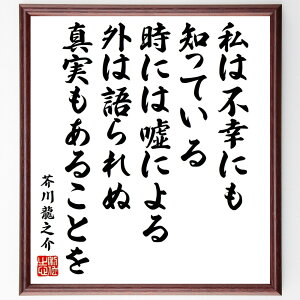 私は不幸にも
知っている
時には嘘による
外は語られぬ
真実もあることを
芥川龍之介